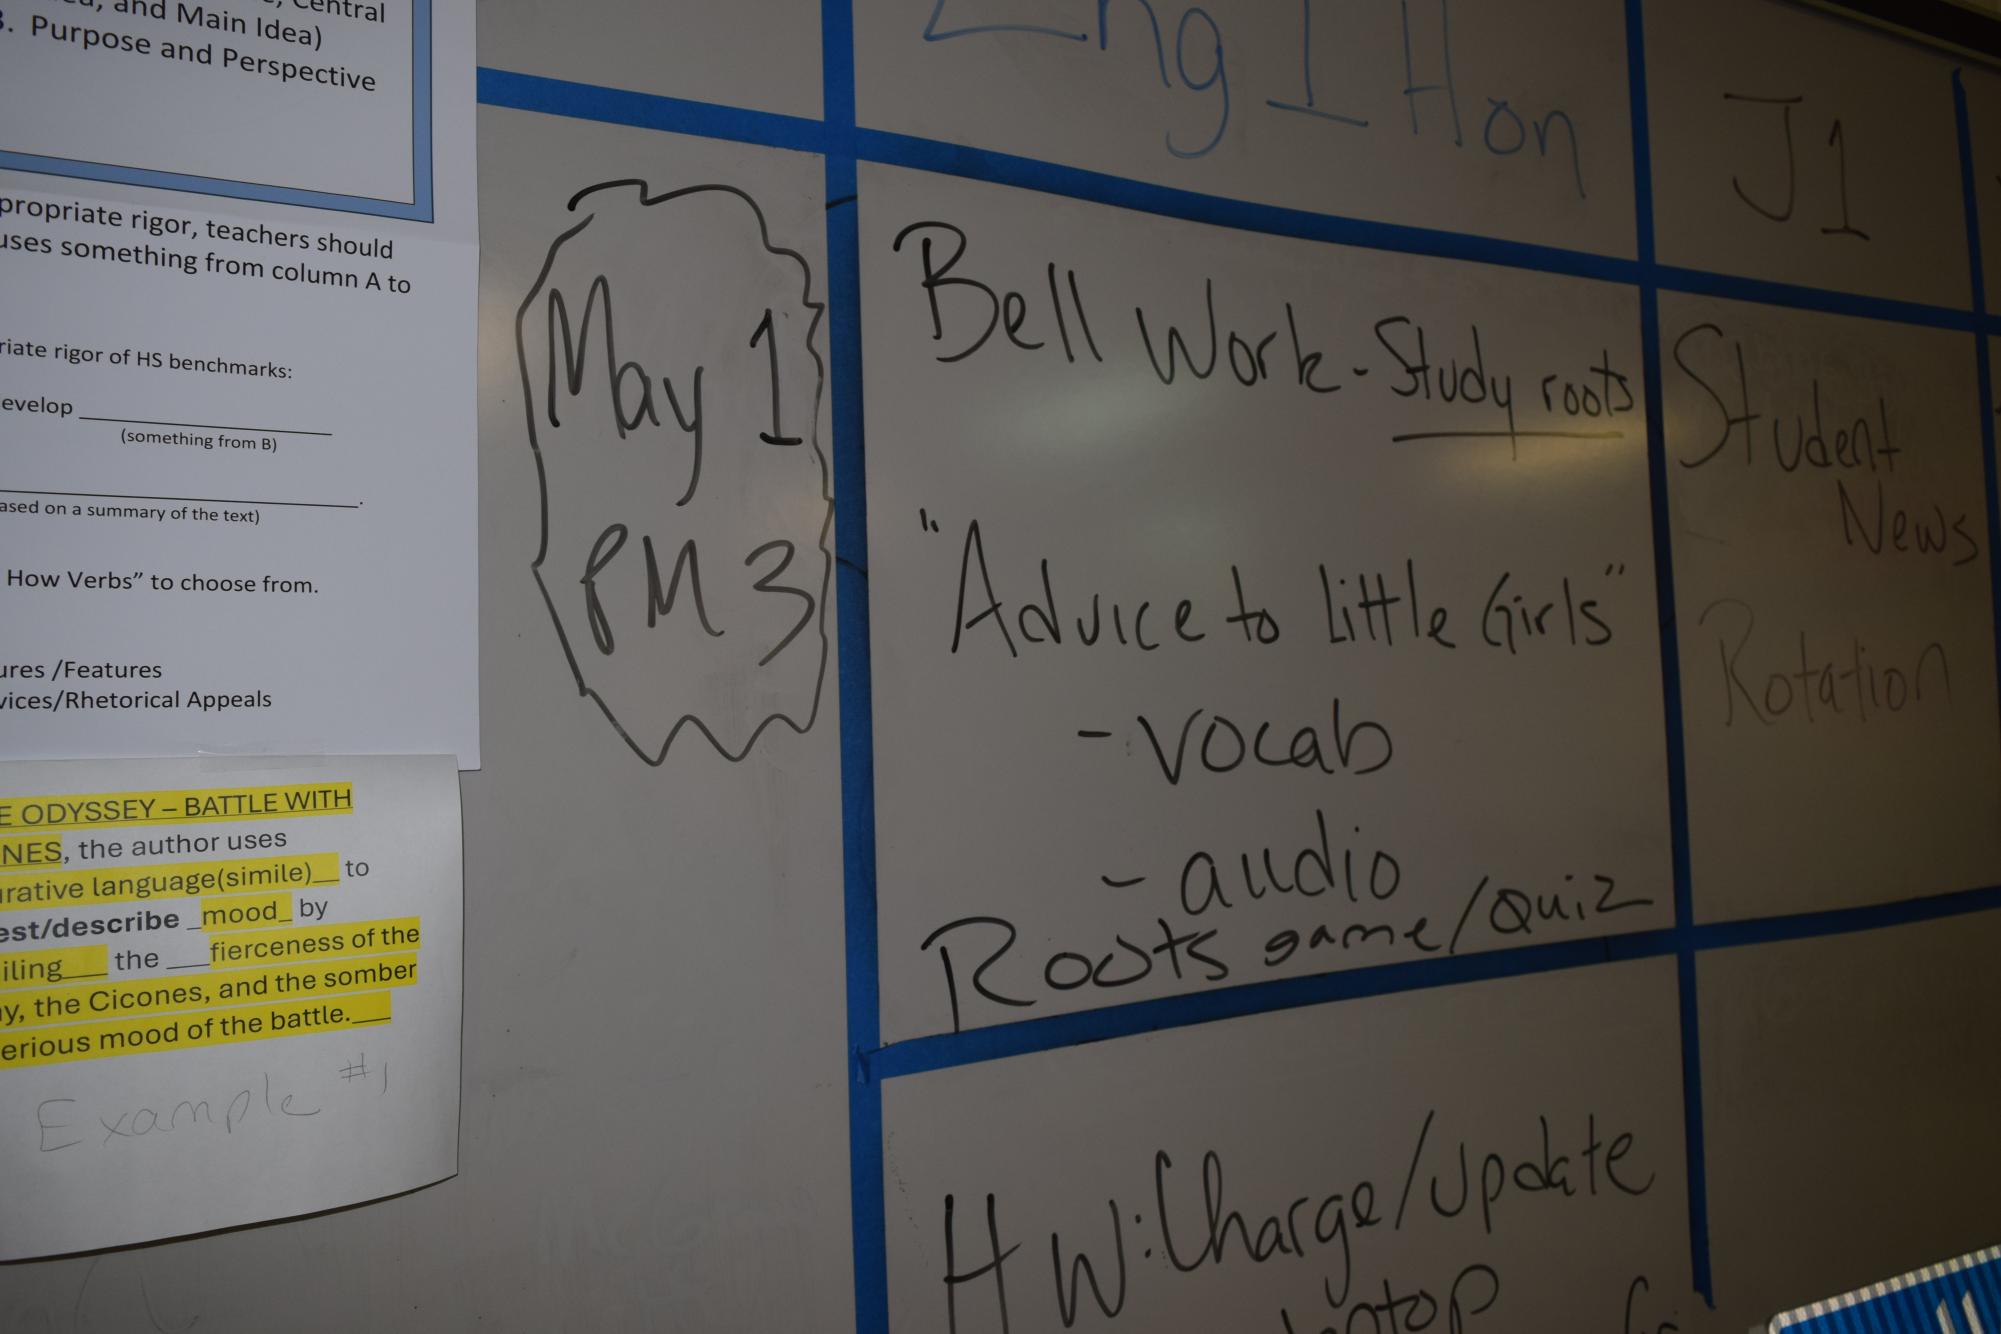 Central
and Main Idea)
3. Purpose and Perspective
propriate rigor, teachers should
uses something from column A to
riate rigor of HS benchmarks:
evelop
(something from B)
ased on a summary of the text)
How Verbs” to choose from.
ures /Features
vices/Rhetorical Appeals
E ODYSSEY – BATTLE WITH
NES, the author uses
urative language(simile)__ to
est/describe _mood_ by
iling___ the ___fierceness of the
y, the Cicones, and the somber
erious mood of the battle.___
Example #1
May 1
PM 3
Eng I Hon
Bell Work - Study roots
"Advice to Little Girls"
- vocab
- audio
Roots game/Quiz
HW: Charge/Update
laptop
J1
Student
News
Rotation